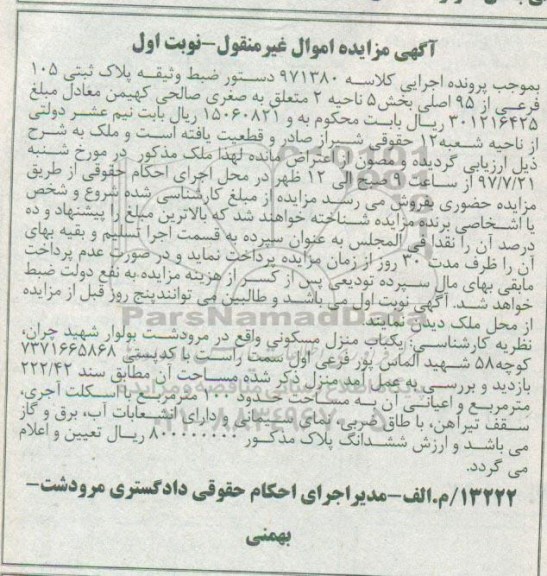 آگهی مزایده اموال غیرمنقول-نوبت اول
بموجب پرونده اجرایی کلاسه ۹۷۱۳۸۰ دستور ضبط وثیقه پلاک ثبتی ۱۰۵
فرعی از ۹۵ اصلی بخش۵ ناحیه ۲ متعلق به صغری صالحی کهیمن معادل مبلغ
۳۰۱۲۱۶۴۲۵ ریال بابت محکوم به و ۱۵۰۶۰۸۲۱ ریال بابت نیم عشر دولتی
از ناحیه شعبه۱۲ حقوقی شیراز صادر و قطعیت یافته است و ملک به شرح
ذیل ارزیابی گردیده و مصون از اعتراض مانده لهذا ملک مذکور در مورخ شنبه
۹۷/۷/۲۱ از ساعت ۹ صبح الی ۱۲ ظهر در محل اجرای احکام حقوقی از طریق
مزایده حضوری بفروش می رسد مزایده از مبلغ کارشناسی شده شروع و شخص
یا اشخاصی برنده مزایده شناخته خواهند شد که بالاترین مبلغ را پیشنهاد و ده
درصد آن را نقدا فی المجلس به عنوان سپرده به قسمت اجرا تسلیم و بقیه بهای
آن را ظرف مدت ۳۰ روز از زمان مزایده پرداخت نماید و در صورت عدم پرداخت
مابقی بهای مال سپرده تودیعی پس از کسر از هزینه مزایده به نفع دولت ضبط
خواهد شد. آگهی نوبت اول می باشد و طالبین می توانندپنج روز قبل از مزایده
از محل ملک دیدن نمایند
نظریه کارشناسی: یکباب منزل مسکونی واقع در مرودشت بولوار شهید چران،
کوچه۵۸ شهید الماس پور فرعی اول سمت راست با کدپستی ۷۳۷۱۶۶۵۸۶۸
بازدید و بررسی به عمل آمد منزل ذکر شده مساحت آن مطابق سند ۲۲۲/۴۲
مترمربع و اعیانی آن به مساحت حدود ۱۰۰ مترمربع با اسکلت آجری،
سقف تیرآهن، با طاق ضربی، نمای سیمانی و دارای انشعابات آب، برق و گاز
می باشد و ارزش ششدانگ پلاک مذکور ۸۰۰۰۰۰۰۰۰ ریال تعیین و اعلام
می گردد.
۱۳۲۲۲/م.الف-مدیراجرای احکام حقوقی دادگستری مرودشت-
بهمنی
ParsNamadData